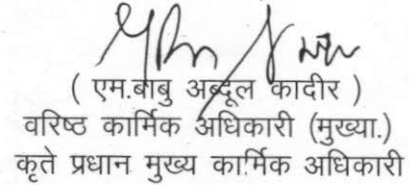 ( एम.बाबु अब्दूल कादीर )
वरिष्ठ कार्मिक अधिकारी (मुख्या.)
कृते प्रधान मुख्य कार्मिक अधिकारी